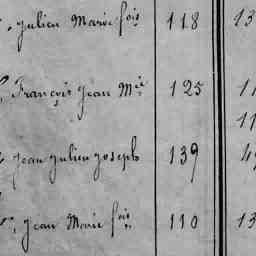 Julien Marie fois 118 13
François Jean Mie 125 11
11
Jean Julien Joseph 139 4
Jean Marie fois 110 13